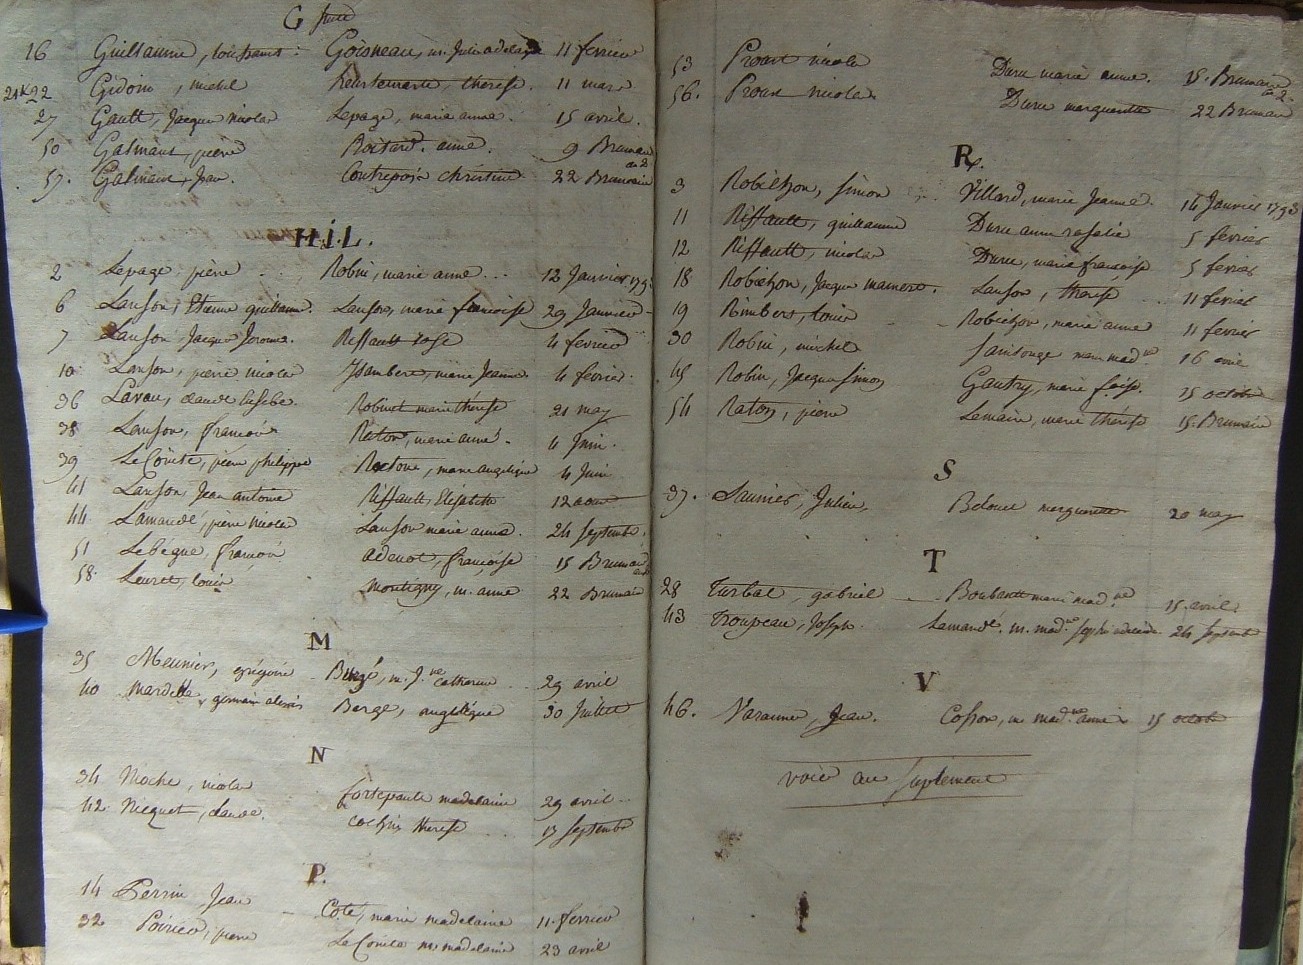 G suite
16 Guillaume, toussaint Goisneau, m. Julie adelaïde 11 fevrier
21 & 22 Gidoin, michel heurtemate, therese. 11 mars
27 Gault, Jacques nicolas Lepage, marie anne. 15 avril.
50 Galinaux, pierre Boitard. anne. 9 Brumaire an 2
57. Galinaux, Jean. Contrepoix christine 22 Brumaire
H.J.L.
2 Lepage, pierre Robin, marie anne 12 Janvier 1793
6 Lanson, Etienne guillaume. Lanson, marie francoise 29 Janvier
7 Lanson, Jacques Jerome. Riffault rose 4 fevrier
10 Lanson, pierre nicolas Ysambert, marie Jeanne 4 fevrier.
36 Lavau, claude Robinet marie thérèse 21 may
38 Lanson, francois Raton, marie anne. 4 Juin.
39 Le Comte, pierre philippe marie angelique 4 Juin
41 Lanson, Jean antoine Riffault, Elisabeth 12 aout
44 Lamandé, pierre nicolas Lanson marie anne. 24 septembre
51 Lebégue, francois adenot, françoise 15 Brumaire
58. Leuret, louis Montigny, m. anne 22 Brumaire
M
35 Meunier, grégoire Bergé, m. J.ne catherine 29 avril
40 Mardelle, germain alexis Berge, angelique 30 Juillet
N
34 Noche, nicolas fortepaulle madelaine 29 avril
42 Nicquet, claude. Cochin therese 17 septembre
P.
14 Perrin Jean Coté, marie madelaine 11. fevrier
32 Poirier, pierre Le Comte m. madelaine 23 avril
53 Prout nicolas Duru marie anne. 15. Brumaire an 2.
56. Prout nicolas Duru marguerite 22 Brumaire
R.
3 Robichon, simon Villard, marie Jeanne. 14 Janvier 1793
11 Riffault, guillaume Duru anne rosalie 5 fevrier
12 Riffault, nicolas Duru, marie françoise 5 fevrier
18 Robichon, Jacques Lanson, therese 11 fevrier
19 Rimbert, louis Robichon, marie anne 11 fevrier
30 Robin, michel Saintonge marie mad.ne 16 avril
45 Robin, Jacques simon Gautry, marie 15 octobre
54 Raton, pierre Lemaire, marie thérèse 15. Brumaire
S
37. Saunier, Julien, marguerite 20 may
T
28 Turbal, gabriel marie mad.ne 15. avril
43 Troupeau, Joseph. Lamandé. m. mad.ne 24 septembre
V
46. Varanne, Jean. Cosson, m. mad.ne anne 15 octobre
voir au suplement